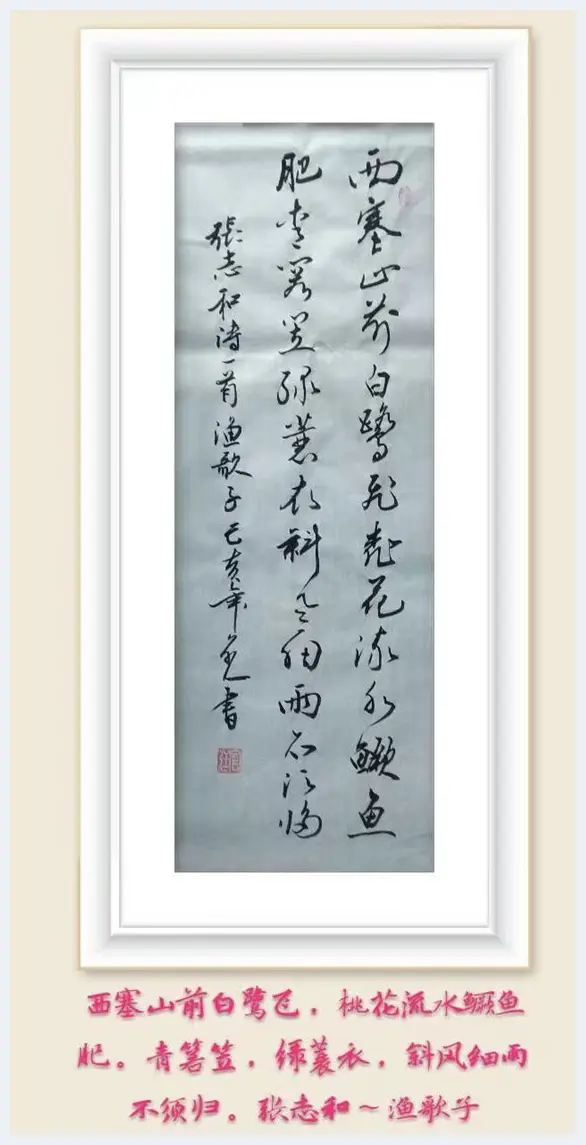 西塞山前白鷺飛桃花流水鱖魚
肥青箬笠綠蓑衣斜風細雨不須歸
張志和詩一首漁歌子己亥年書
西塞山前白鹭飞，桃花流水鳜鱼
肥。青箬笠，绿蓑衣，斜风细雨
不须归。张志和～渔歌子